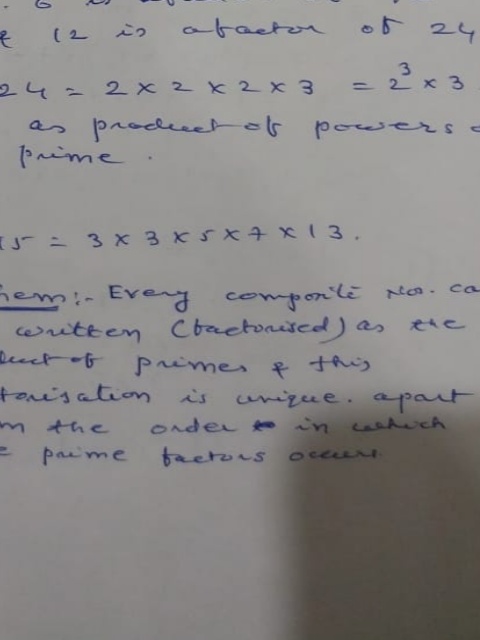 12 is a factor of 24
24 = 2 x 2 x 2 x 3 = 2³ x 3
as product of powers
prime.
15 = 3 x 3 x 5 x 7 x 13.
hem:- Every composite No. ca
written (factorised) as the
duct of primes & this
torisation is unique. apart
m the order in which
e prime factors occurs